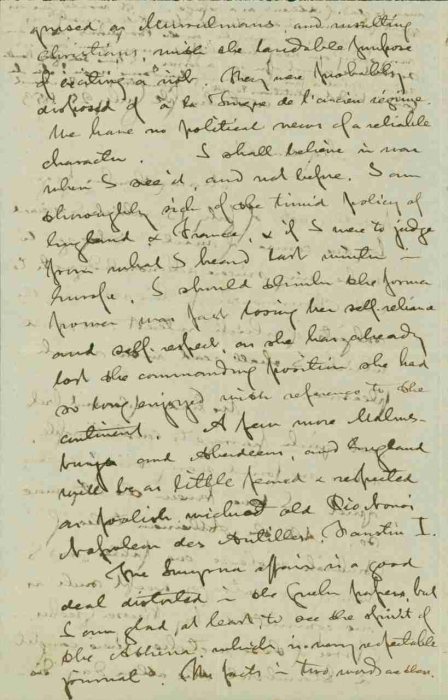 as Mussulmans and insulting
Christians, with the laudable purpose
of exciting a riot. They were probably
disposed of à la Turque de l'ancien régime.
We have no political news of a reliable
character. I shall believe in war
when I see it, and not before. I am
thoroughly sick of the timid policy of
England & France, & if I were to judge
from what I heard last winter in
Europe, I should think the former
power was fast losing her self-reliance
and self-respect, as she has already
lost the commanding position she had
so long enjoyed with reference to the
continent. A few more Malms-
burys and Aberdeens, and England
will be as little feared & respected
as foolish, wicked old
Napoleon des Antilles, Faustin I.
The Smyrna affair is a good
deal distorted in the papers, but
I am glad, at least, to see the spirit of
the Athena, which is a very respectable
journal. The facts in two words are these.